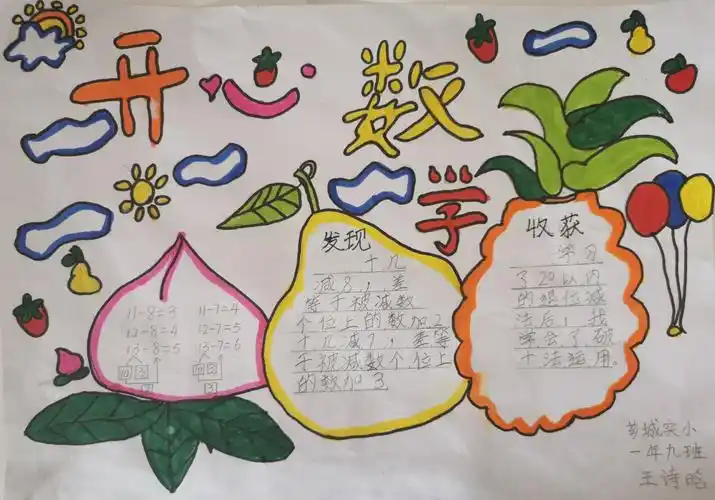 开心数学
11-8=3 11-7=4
12-8=4 12-7=5
13-8=5 13-7=6
发现
十几
减8，差
等于被减数
个位上的数加2
十几减7，差等
于被减数个位上
的数加3
收获
学习
了20以内
的退位减
法后，我
学会了破
十法运用。
一年九班